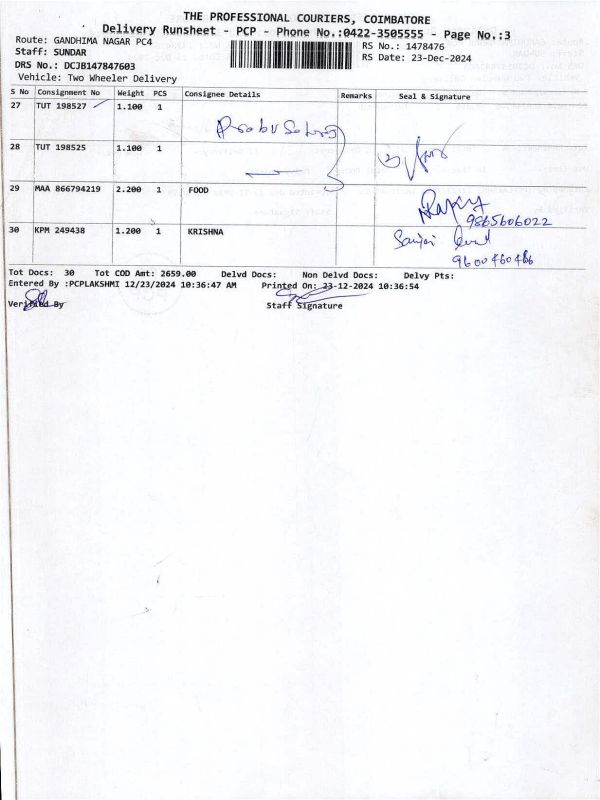 THE PROFESSIONAL COURIERS, COIMBATORE
Delivery Runsheet - PCP - Phone No.:0422-3505555 - Page No.:3
Route: GANDHIMA NAGAR PC4
RS No.: 1478476
Staff: SUNDAR
RS Date: 23-Dec-2024
DRS No.: DCJB147847603
Vehicle: Two Wheeler Delivery
S No Consignment No Weight PCS Consignee Details Remarks Seal & Signature
27 TUT 198527 1.100 1
28 TUT 198525 1.100 1
29 MAA 866794219 2.200 1 FOOD
9865606022
30 KPM 249438 1.200 1 KRISHNA
9600460466
Tot Docs: 30 Tot COD Amt: 2659.00 Delvd Docs: Non Delvd Docs: Delvy Pts:
Entered By :PCPLAKSHMI 12/23/2024 10:36:47 AM Printed On: 23-12-2024 10:36:54
Verified By Staff Signature